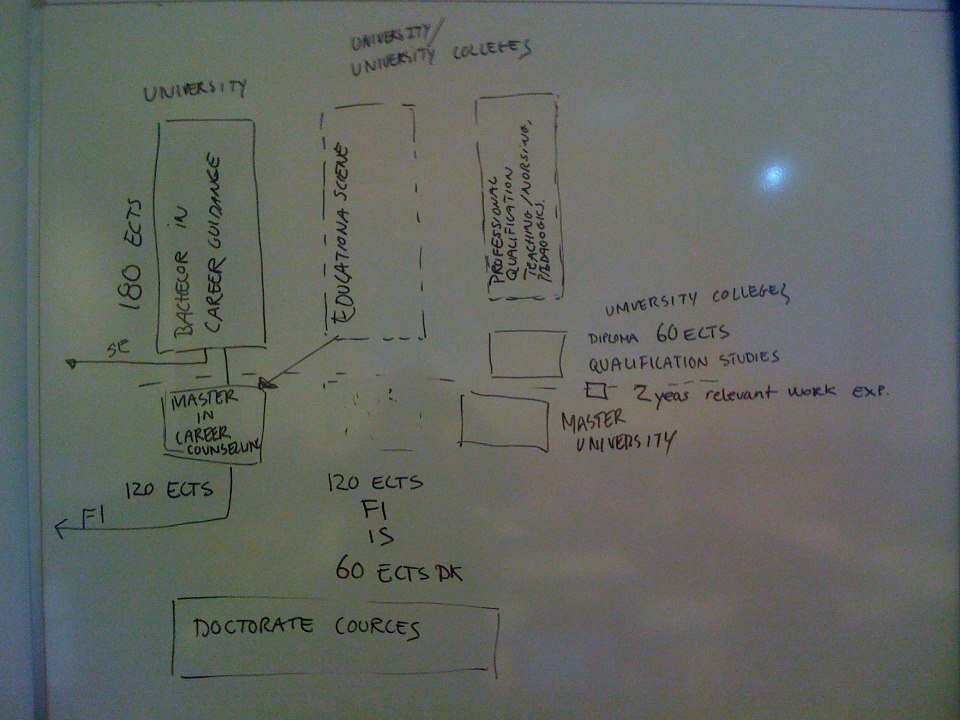 UNIVERSITY
UNIVERSITY/
UNIVERSITY COLLEGES
180 ECTS
BACHELOR IN
CAREER GUIDANCE
EDUCATIONA SCIENE
PROFESSIONAL
QUALIFICATION
TEACHING/NURSING,
PEDAGOGICS.
UNIVERSITY COLLEGES
DIPLOMA 60 ECTS
QUALIFICATION STUDIES
2 yeas relevant work exp.
SE
MASTER
IN
CAREER
COUNSELLING
MASTER
UNIVERSITY
120 ECTS
FI
120 ECTS
FI
IS
60 ECTS DK
DOCTORATE COURCES